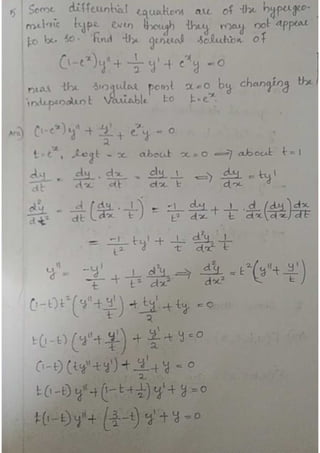 5) Some differential equations are of the hypergeo-
metric type even though they may not appear
to be so. Find the general solution of
(1-eˣ)y'' + 1/2 y' + eˣy = 0
near the singular point x=0 by changing the
independent variable to t=eˣ.
Ans) (1-eˣ)y'' + y'/2 + eˣy = 0
t=eˣ, logt = x about x=0 ⟹ about t=1
dy/dt = dy/dx . dx/dt = dy/dx . 1/t ⟹ dy/dx = ty'
d²y/dt² = d/dt (dy/dx . 1/t) = -1/t² dy/dx + 1/t . d/dx (dy/dx) dx/dt
= -1/t² ty' + 1/t . d²y/dx² . 1/t
y'' = -y'/t + 1/t² d²y/dx² ⟹ d²y/dx² = t² (y'' + y'/t)
(1-t)t² (y'' + y'/t) + ty'/2 + ty = 0
t(1-t) (y'' + y'/t) + y'/2 + y = 0
(1-t) (ty'' + y') + y'/2 + y = 0
t(1-t) y'' + (1-t+1/2) y' + y = 0
t(1-t) y'' + (3/2 - t) y' + y = 0